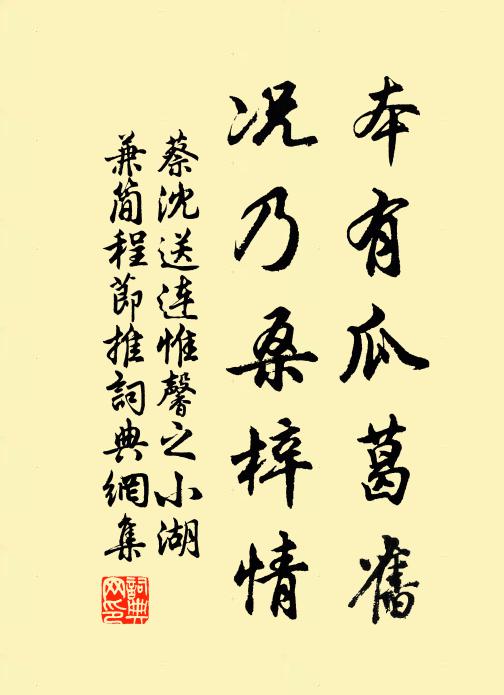 本有瓜葛舊
况乃桑梓情
蔡沈送連惟馨之小湖
兼簡程節推詞典網集
詞典網印